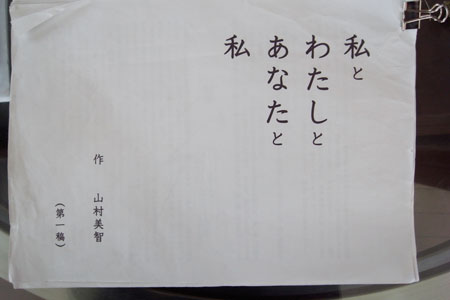 私と
わたしと
あなたと
私
作　山村美智
（第一稿）